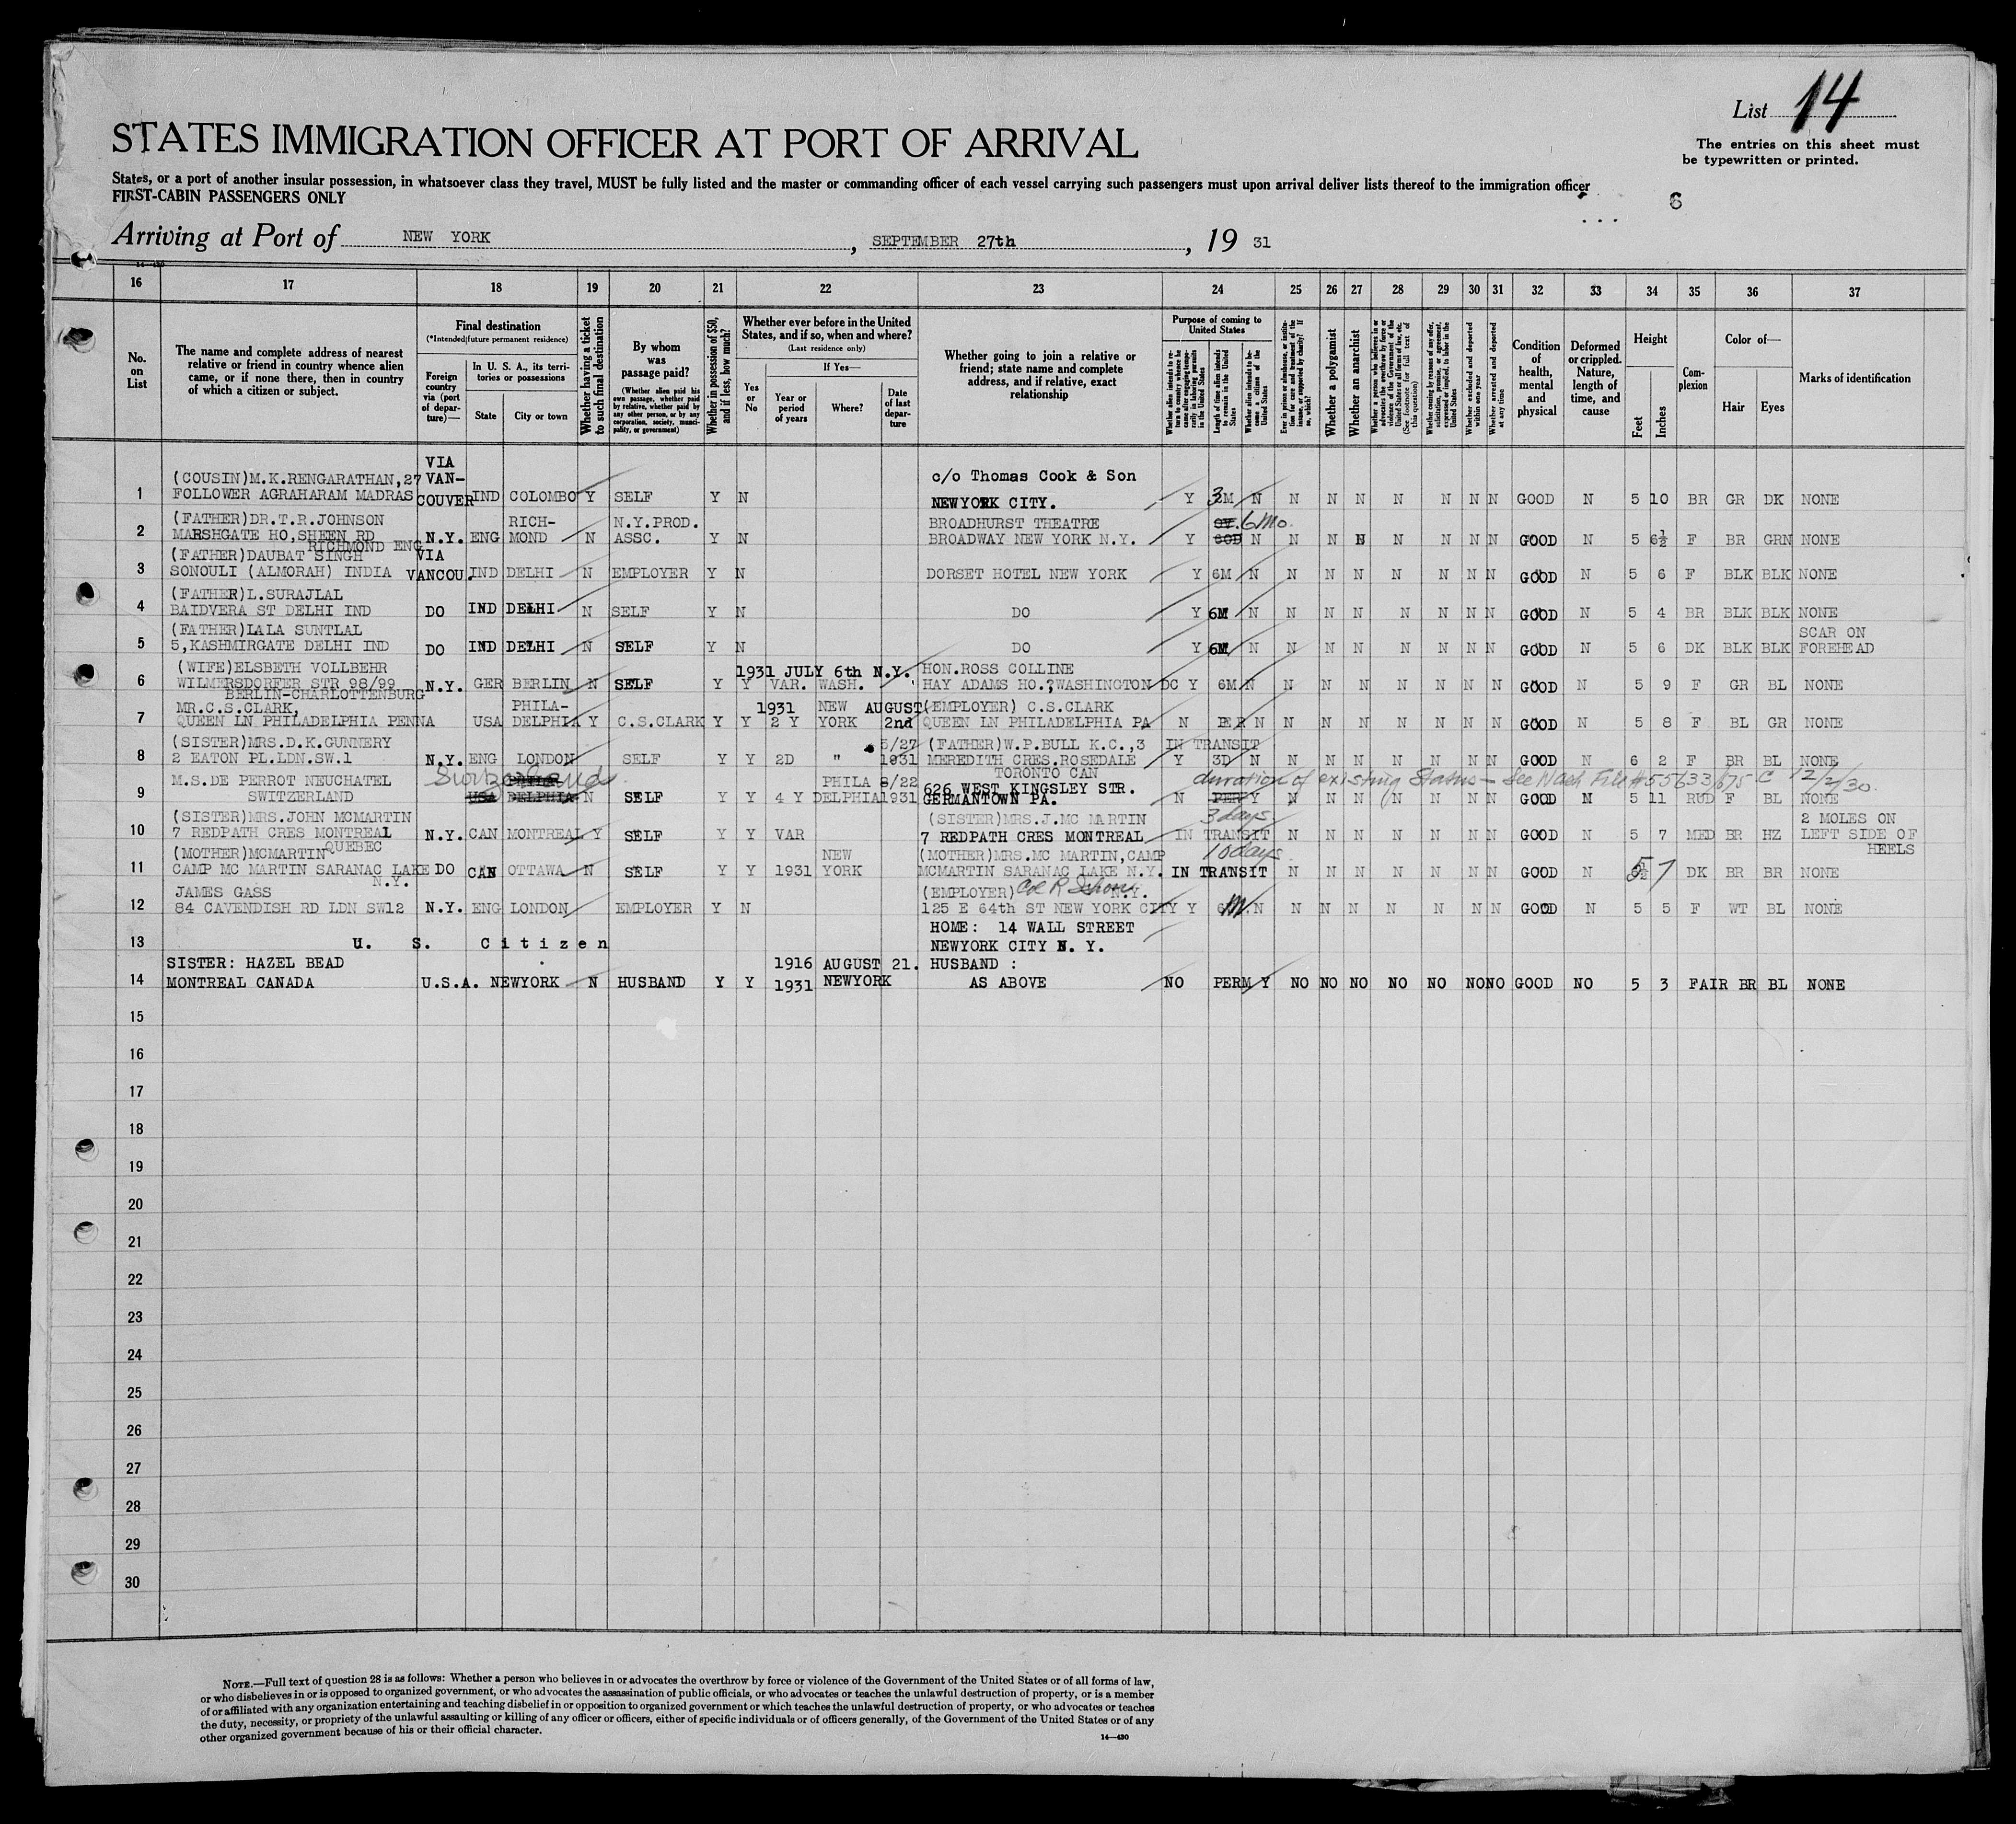 List 14
The entries on this sheet must
be typewritten or printed.
STATES IMMIGRATION OFFICER AT PORT OF ARRIVAL
States, or a port of another insular possession, in whatsoever class they travel, MUST be fully listed and the master or commanding officer of each vessel carrying such passengers must upon arrival deliver lists thereof to the immigration officer
FIRST-CABIN PASSENGERS ONLY
6
Arriving at Port of NEW YORK, SEPTEMBER 27th, 19 31
14—430
16 17 18 19 20 21 22 23 24 25 26 27 28 29 30 31 32 33 34 35 36 37
No. on List
The name and complete address of nearest relative or friend in country whence alien came, or if none there, then in country of which a citizen or subject.
Final destination
(*Intended future permanent residence)
Foreign country via (port of departure)—
In U. S. A., its territories or possessions
State
City or town
Whether having a ticket to such final destination
By whom was passage paid?
(Whether alien paid his own passage, whether paid by relative, whether paid by any other person, or by any corporation, society, municipality, or government)
Whether in possession of $50, and if less, how much?
Whether ever before in the United States, and if so, when and where?
(Last residence only)
Yes or No
If Yes—
Year or period of years
Where?
Date of last departure
Whether going to join a relative or friend; state name and complete address, and if relative, exact relationship
Purpose of coming to United States
Whether alien intends to return to country whence he came after engaging temporarily in laboring pursuits in the United States
Length of time alien intends to remain in the United States
Whether alien intends to become a citizen of the United States
Ever in prison or almshouse, or institution for care and treatment of the insane, or supported by charity? If so, which?
Whether a polygamist
Whether an anarchist
Whether a person who believes in or advocates the overthrow by force or violence of the Government of the United States or all forms of law, etc. (See footnote for full text of this question)
Whether coming by reason of any offer, solicitation, promise, or agreement, expressed or implied, to labor in the United States
Whether excluded and deported within one year
Whether arrested and deported at any time
Condition of health, mental and physical
Deformed or crippled. Nature, length of time, and cause
Height
Feet
Inches
Complexion
Color of—
Hair
Eyes
Marks of identification
VIA
(COUSIN)M.K.RENGARATHAN,27 VAN- c/o Thomas Cook & Son
1 FOLLOWER AGRAHARAM MADRAS COUVER IND COLOMBO Y SELF Y N NEWYORK CITY. Y 3M N N N N N N N N GOOD N 5 10 BR GR DK NONE
(FATHER)DR.T.R.JOHNSON RICH- N.Y.PROD. BROADHURST THEATRE 6 Mo.
2 MARSHGATE HO,SHEEN RD N.Y. ENG MOND N ASSC. Y N BROADWAY NEW YORK N.Y. Y N N N N N N N N GOOD N 5 6½ F BR GRN NONE
RICHMOND ENG
(FATHER)DAUBAT SINGH VIA
3 SONOULI (ALMORAH) INDIA VANCOU. IND DELHI N EMPLOYER Y N DORSET HOTEL NEW YORK Y 6M N N N N N N N N GOOD N 5 6 F BLK BLK NONE
(FATHER)L.SURAJLAL
4 BAIDVERA ST DELHI IND DO IND DELHI N SELF Y N DO Y 6M N N N N N N N N GOOD N 5 4 BR BLK BLK NONE
(FATHER)LALA SUNTLAL SCAR ON
5 5,KASHMIRGATE DELHI IND DO IND DELHI N SELF Y N DO Y 6M N N N N N N N N GOOD N 5 6 DK BLK BLK FOREHEAD
(WIFE)ELSBETH VOLLBEHR 1931 JULY 6th N.Y. HON.ROSS COLLINE
6 WILMERSDORFER STR 98/99 N.Y. GER BERLIN N SELF Y Y VAR. WASH. HAY ADAMS HO.,WASHINGTON DC Y 6M N N N N N N N N GOOD N 5 9 F GR BL NONE
BERLIN-CHARLOTTENBURG
MR.C.S.CLARK, PHILA- 1931 NEW AUGUST (EMPLOYER) C.S.CLARK
7 QUEEN LN PHILADELPHIA PENNA USA DELPHIA Y C.S.CLARK Y Y 2 Y YORK 2nd QUEEN LN PHILADELPHIA PA N PER N N N N N N N N GOOD N 5 8 F BL GR NONE
(SISTER)MRS.D.K.GUNNERY 5/27 (FATHER)W.P.BULL K.C.,3 IN TRANSIT
8 2 EATON PL.LDN.SW.1 N.Y. ENG LONDON SELF Y Y 2D " 1931 MEREDITH CRES.ROSEDALE Y 3D N N N N N N N N GOOD N 6 2 F BR BL NONE
TORONTO CAN
M.S.DE PERROT NEUCHATEL Switzerland PHILA 8/22 626 WEST KINGSLEY STR. duration of existing Status — See Wash File # 55633/875 C 12/2/30.
9 SWITZERLAND USA DELPHIA N SELF Y Y 4 Y DELPHIA 1931 GERMANTOWN PA. N PER Y N N N N N N N GOOD N 5 11 RUD F BL NONE
(SISTER)MRS.JOHN MCMARTIN (SISTER)MRS.J.MC MARTIN 3 days. 2 MOLES ON
10 7 REDPATH CRES MONTREAL N.Y. CAN MONTREAL Y SELF Y Y VAR 7 REDPATH CRES MONTREAL IN TRANSIT N N N N N N N GOOD N 5 7 MED BR HZ LEFT SIDE OF
QUEBEC HEELS
(MOTHER)MCMARTIN NEW (MOTHER)MRS.MC MARTIN,CAMP 10 days
11 CAMP MC MARTIN SARANAC LAKE DO CAN OTTAWA N SELF Y Y 1931 YORK MCMARTIN SARANAC LAKE N.Y. IN TRANSIT N N N N N N N GOOD N 5½ 7 DK BR BR NONE
N.Y.
JAMES GASS (EMPLOYER) N.Y.
12 84 CAVENDISH RD LDN SW12 N.Y. ENG LONDON EMPLOYER Y N 125 E 64th ST NEW YORK CITY Y 6M. N N N N N N N N GOOD N 5 5 F WT BL NONE
HOME: 14 WALL STREET
13 U. S. Citizen NEWYORK CITY N. Y.
SISTER: HAZEL BEAD 1916 AUGUST 21. HUSBAND :
14 MONTREAL CANADA U.S.A. NEWYORK N HUSBAND Y Y 1931 NEWYORK AS ABOVE NO PERM Y NO NO NO NO NO NO NO GOOD NO 5 3 FAIR BR BL NONE
15
16
17
18
19
20
21
22
23
24
25
26
27
28
29
30
NOTE.—Full text of question 28 is as follows: Whether a person who believes in or advocates the overthrow by force or violence of the Government of the United States or of all forms of law,
or who disbelieves in or is opposed to organized government, or who advocates the assassination of public officials, or who advocates or teaches the unlawful destruction of property, or is a member
of or affiliated with any organization entertaining and teaching disbelief in or opposition to organized government or which teaches the unlawful destruction of property, or who advocates or teaches
the duty, necessity, or propriety of the unlawful assaulting or killing of any officer or officers, either of specific individuals or of officers generally, of the Government of the United States or of any
other organized government because of his or their official character.
14—430